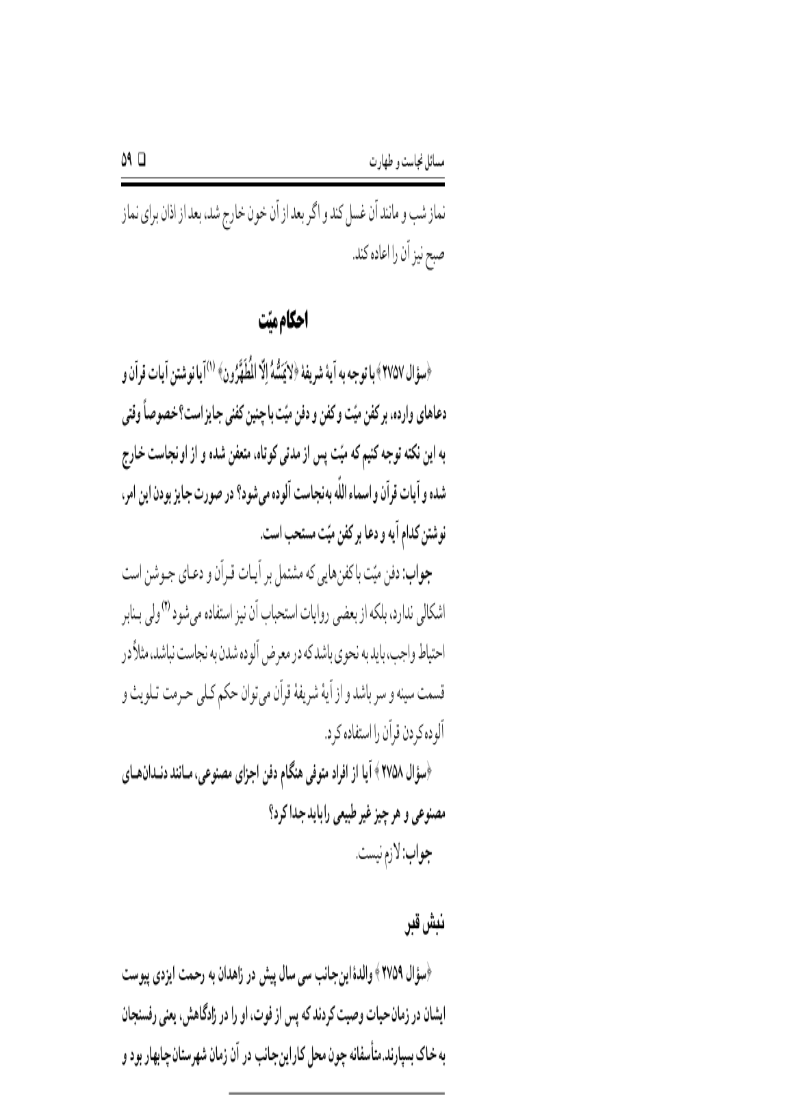 مسائل نجاست و طهارت ❑ ۵۹
نماز شب و مانند آن غسل کند و اگر بعد از آن خون خارج شد، بعد از اذان برای نماز
صبح نیز آن را اعاده کند.
احکام میّت
﴿سؤال ۲۷۵۷﴾ با توجه به آیۀ شریفۀ ﴿لایَمَسُّهُ اِلّا المُطَهَّرُون﴾ (۱) آیا نوشتن آیات قرآن و
دعاهای وارده، بر کفن میّت و کفن و دفن میّت با چنین کفنی جایز است؟ خصوصاً وقتی
به این نکته توجه کنیم که میّت پس از مدتی کوتاه، متعفن شده و از او نجاست خارج
شده و آیات قرآن و اسماء اللّه به‌نجاست آلوده می‌شود؟ در صورت جایز بودن این امر،
نوشتن کدام آیه و دعا بر کفن میّت مستحب است.
جواب: دفن میّت با کفن‌هایی که مشتمل بر آیـات قـرآن و دعـای جـوشن است
اشکالی ندارد، بلکه از بعضی روایات استحباب آن نیز استفاده می‌شود (۲) ولی بـنابر
احتیاط واجب، باید به نحوی باشد که در معرض آلوده شدن به نجاست نباشد، مثلاً در
قسمت سینه و سر باشد و از آیۀ شریفۀ قرآن می‌توان حکم کـلی حـرمت تـلویث و
آلوده کردن قرآن را استفاده کرد.
﴿سؤال ۲۷۵۸﴾ آیا از افراد متوفی هنگام دفن اجزای مصنوعی، مـانند دنـدان‌هـای
مصنوعی و هر چیز غیر طبیعی را باید جدا کرد؟
جواب: لازم نیست.
نبش قبر
﴿سؤال ۲۷۵۹﴾ والدۀ این‌جانب سی سال پیش در زاهدان به رحمت ایزدی پیوست
ایشان در زمان حیات وصیت کردند که پس از فوت، او را در زادگاهش، یعنی رفسنجان
به خاک بسپارند. متأسفانه چون محل کار این‌جانب در آن زمان شهرستان چابهار بود و